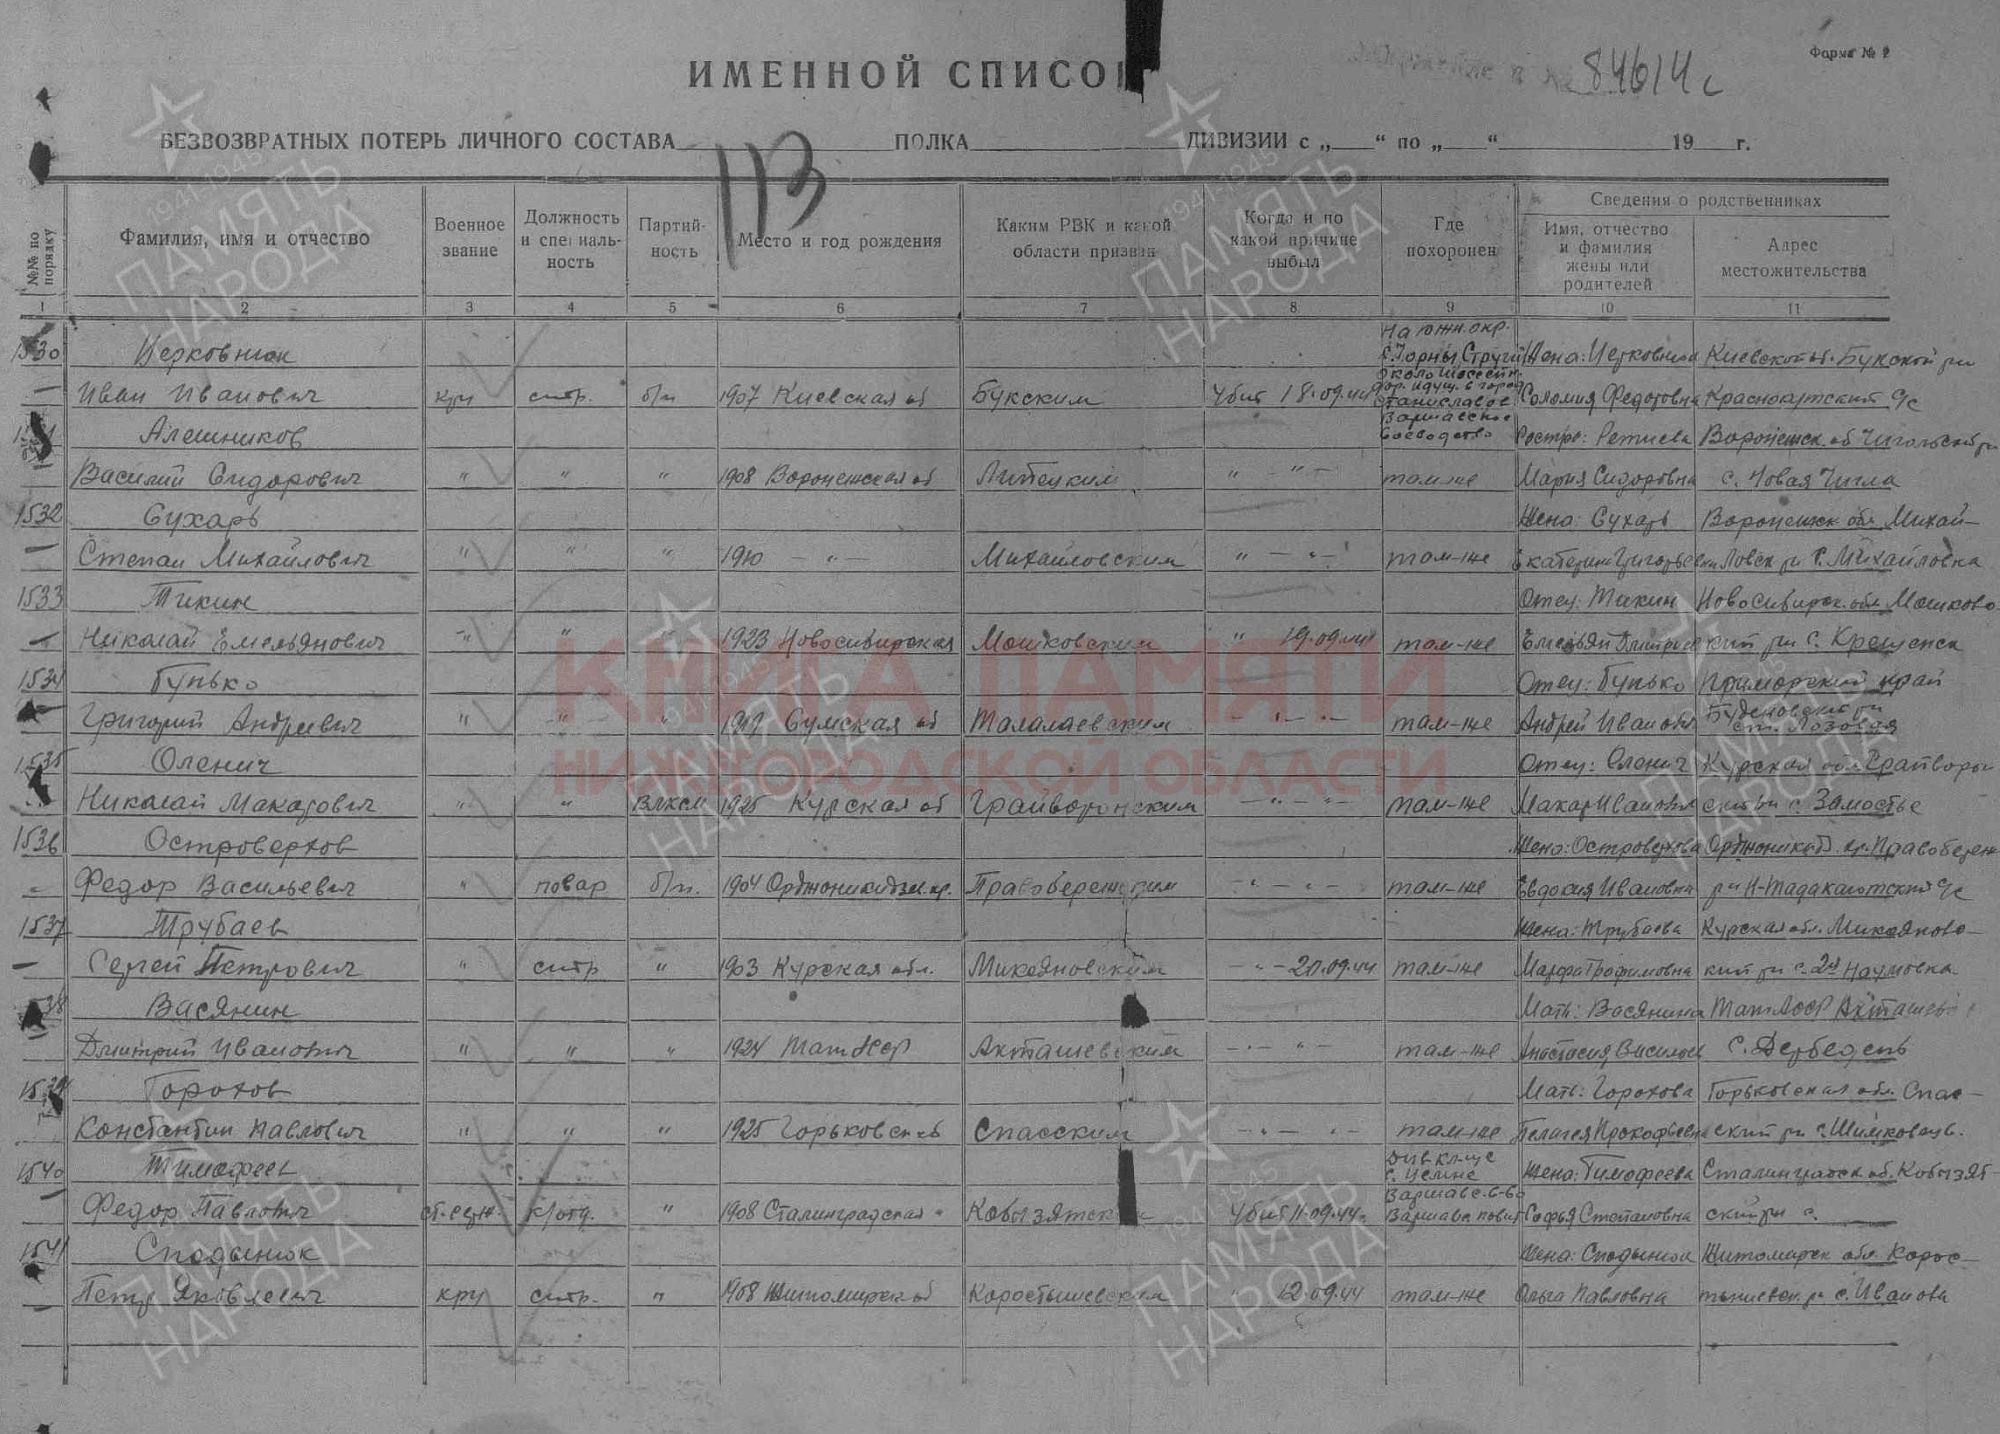 Форма № 2
84614с
ИМЕННОЙ СПИСОК
БЕЗВОЗВРАТНЫХ ПОТЕРЬ ЛИЧНОГО СОСТАВА ПОЛКА ДИВИЗИИ с „ “ по „ “ 19 г.
113
№№ по порядку
Фамилия, имя и отчество
Военное звание
Должность и специальность
Партийность
Место и год рождения
Каким РВК и какой области призван
Когда и по какой причине выбыл
Где похоронен
Сведения о родственниках
Имя, отчество и фамилия жены или родителей
Адрес местожительства
1 2 3 4 5 6 7 8 9 10 11
1530 Церковнюк Жена: Церковнюк Киевской об. Букской рн
Иван Иванович кр стр. б/п 1907 Киевская об Букским Убит 18.09.44 Соломия Федотовна
На южн. окр.
около шоссейн.
дор. идущ. в город
Станиславов
Варшавское
воеводство
1531 Алешников Воронежск. об
Василий Сидорович " " " 1908 Воронежская об Липецким " - " - там-же Мария Сидоровна с. Новая Чигла
1532 Сухарь Жена: Сухарь Воронежск обл. Михай-
Степан Михайлович " " " 1910 - " - Михайловским " - " - там-же Екатерина Григорьевна ловск рн с. Михайловка
1533 Тикин Отец: Тикин Новосибирск. обл. Мошково-
Николай Емельянович " " " 1923 Новосибирская Мошковским " 19.09.44 там-же Емельян Дмитриев
1534 Бунько Отец: Бунько Приморский край
Григорий Андреевич " " " 1919 Сумская об Талалаевским - " - " - там-же Андрей Иванович Буденовский рн ст. Лозовая
1535 Оленич Отец: Оленич Курская обл. Грайворон
Николай Макарович " " ВЛКСМ 1925 Курская об Грайворонским - " - " - там-же Макар Иванович ский рн с. Замостье
1536 Островерхов Жена: Островерхова Орджоникидз. кр. Правобереж
Федор Васильевич " повар б/п. 1904 Орджоникидзе кр. Правобережным - " - " - там-же Евдокия Ивановна
1537 Трубаев Жена: Трубаева Курская обл. Микояново-
Сергей Петрович " стр " 1903 Курская обл. Микояновским - " - 20.09.44 там-же Марфа Трофимовна кий рн с. 2я Наумовка
1538 Васянин Мать: Васянина ТатАССР Акташевс
Дмитрий Иванович " " " 1924 ТатАССР Акташевским - " - " - там-же Анастасия Василев с. Дербедень
1539 Горохов Мать: Горохова Горьковская обл. Спас-
Константин Павлович " " " 1925 Горьковск об Спасским - " - " - там-же Пелагея Прокофьевна ский рн
1540 Тимофеев Жена: Тимофеева Сталинградск об. Кобызят-
Федор Павлович ст. серж. к/отд. " 1908 Сталинградская Кобызятским Убит 11.09.44 Софья Степановна ский рн с.
Варшавс. в-во
1541 Сподынюк Жена: Сподынюк Житомирск обл. Корос-
Петр Яковлевич кр стр. " 1908 Житомирск об Коростышевским " 12.09.44 там-же Ольга Павловна тышевск. рн с. Иванова
КНИГА ПАМЯТИ
НИЖЕГОРОДСКОЙ ОБЛАСТИ
1941-1945
ПАМЯТЬ
НАРОДА